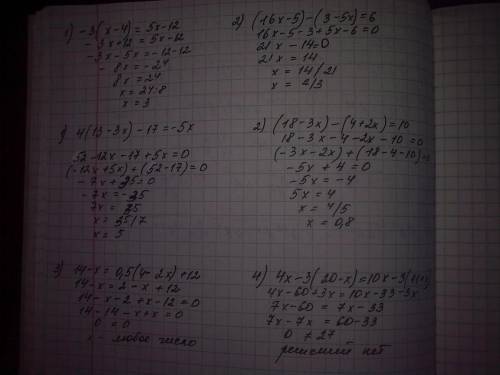 1) -3(x-4) = 5x-12
-3x+12 = 5x-12
-3x-5x = -12-12
-8x = -24
8x = 24
x = 24:8
x = 3
2) (16x-5)-(3-5x)=6
16x-5-3+5x-6=0
21x-14=0
21x=14
x=14/21
x=2/3
1) 4(13-3x)-17=-5x
52-12x-17+5x=0
(-12x+5x)+(52-17)=0
-7x+35=0
-7x=-35
7x=35
x=35/7
x=5
2) (18-3x)-(4+2x)=10
18-3x-4-2x-10=0
(-3x-2x)+(18-4-10)=0
-5x+4=0
-5x=-4
5x=4
x=4/5
x=0,8
3) 14-x=0,5(4-2x)+12
14-x=2-x+12
14-x-2+x-12=0
14-14-x+x=0
0=0
x- любое число
4) 4x-3(20-x)=10x-3(11+x)
4x-60+3x=10x-33-3x
7x-60=7x-33
7x-7x=60-33
0≠27
решений нет